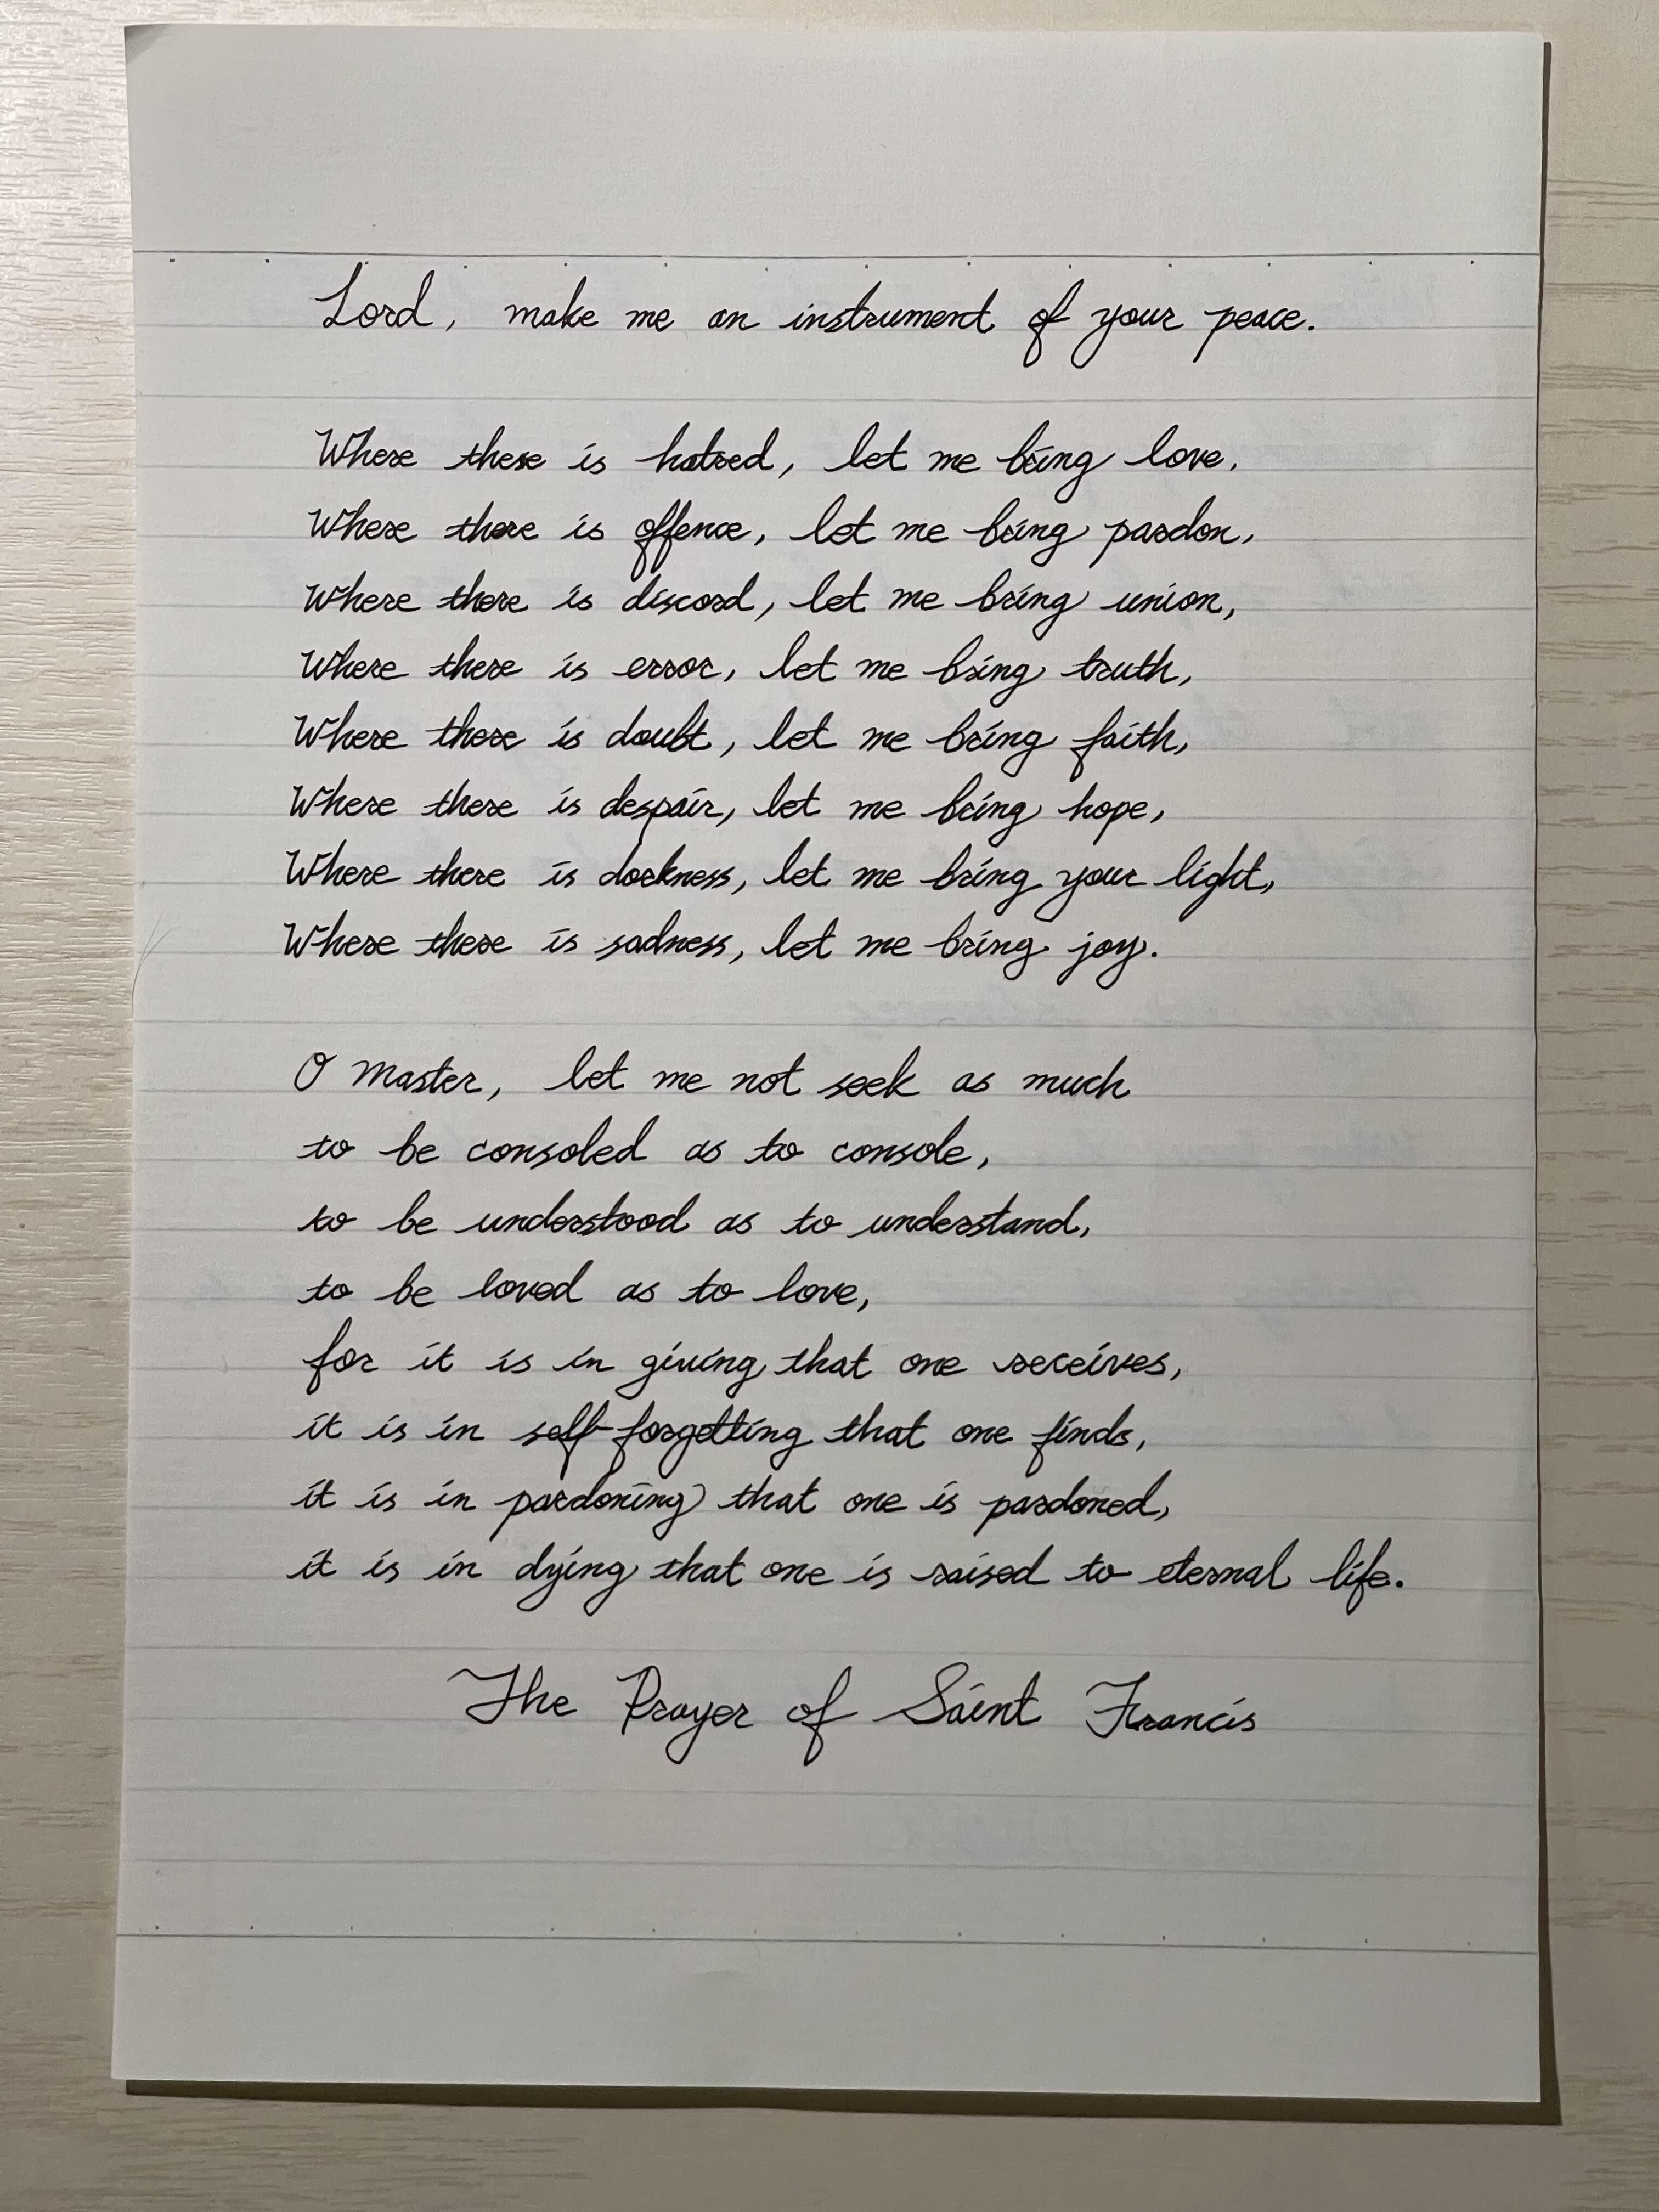 Lord, make me an instrument of your peace.
Where there is hatred, let me bring love,
Where there is offence, let me bring pardon,
Where there is discord, let me bring union,
Where there is error, let me bring truth,
Where there is doubt, let me bring faith,
Where there is despair, let me bring hope,
Where there is darkness, let me bring your light,
Where there is sadness, let me bring joy.
O Master, let me not seek as much
to be consoled as to console,
to be understood as to understand,
to be loved as to love,
for it is in giving that one receives,
it is in self-forgetting that one finds,
it is in pardoning that one is pardoned,
it is in dying that one is raised to eternal life.
The Prayer of Saint Francis